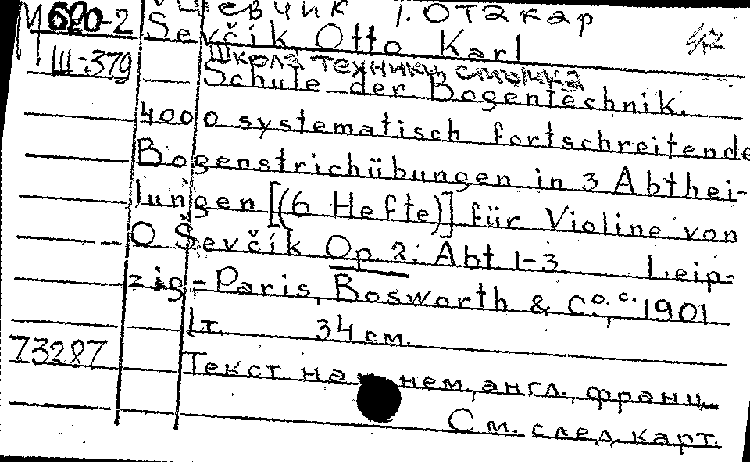 М 620-2 Шевчик 1. Отакар 42
III-379 Ševčik Otto Karl
Школа техники смычка
Schule der Bogentechnik.
4000 systematisch fortschreitende
Bogenstrichübungen in 3 Abthei-
lungen [(6 Hefte)] für Violine von
O Ševčík Op 2. Abt 1-3 Leip-
zig-Paris, Bosworth & Co., c. 1901
1 т. 34 см.
73287 Текст на нем, англ. франц.
См. след карт.